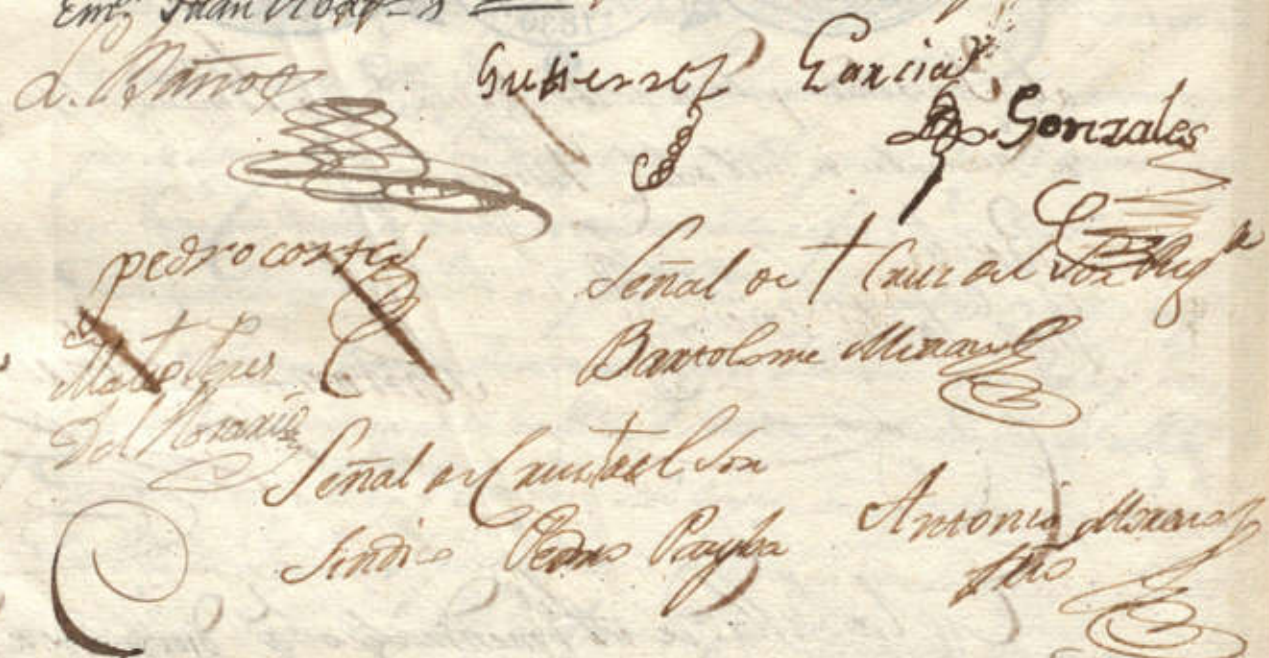 Juan
L. Baños
Gutierrez Garcia
Gonzales
pedro cortes
Señal de † Cruz del Sor Regr
Bartolome Miran
Mateo Peris
Del
Señal de Cruz † del Sor
Sindico Pedro Payba
Antonio Moreno
ssno